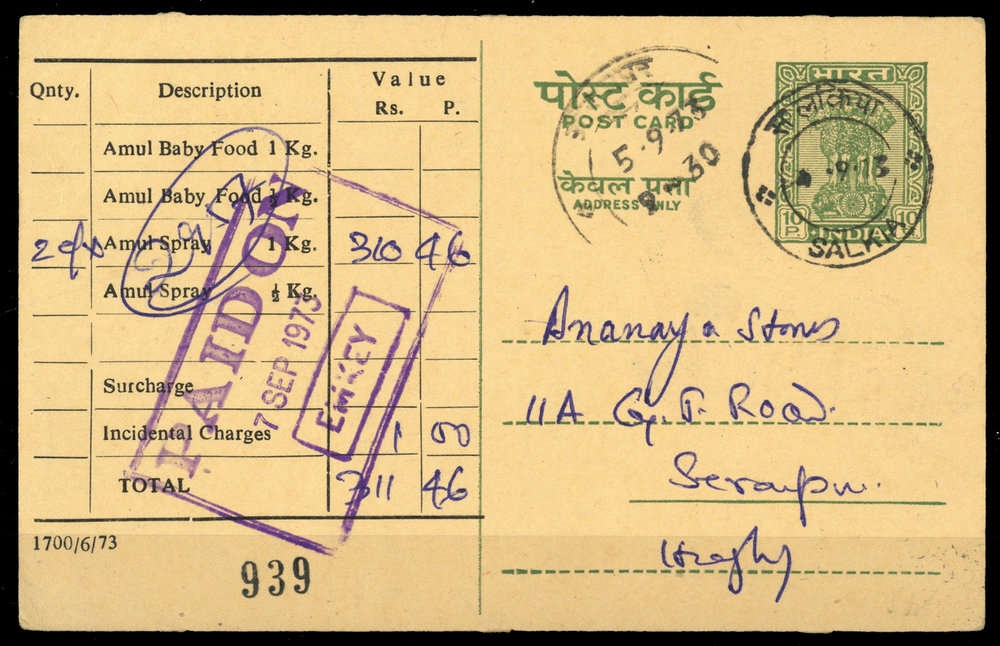 Qnty. Description Value
Rs. P.
Amul Baby Food 1 Kg.
Amul Baby Food ½ Kg.
Amul Spray 1 Kg. 310 46
Amul Spray ½ Kg.
Surcharge
Incidental Charges 1 00
TOTAL 311 46
1700/6/73
939
PAID ON
7 SEP 1973
EMKEY
पोस्ट कार्ड
POST CARD
केवल पता
ADDRESS ONLY
5.9.73
9-30
भारत
10 P. 10 P.
INDIA
सालकिया
.9.73
SALKIA
Ananaya Stores
11A G.T. Road.
Hughly